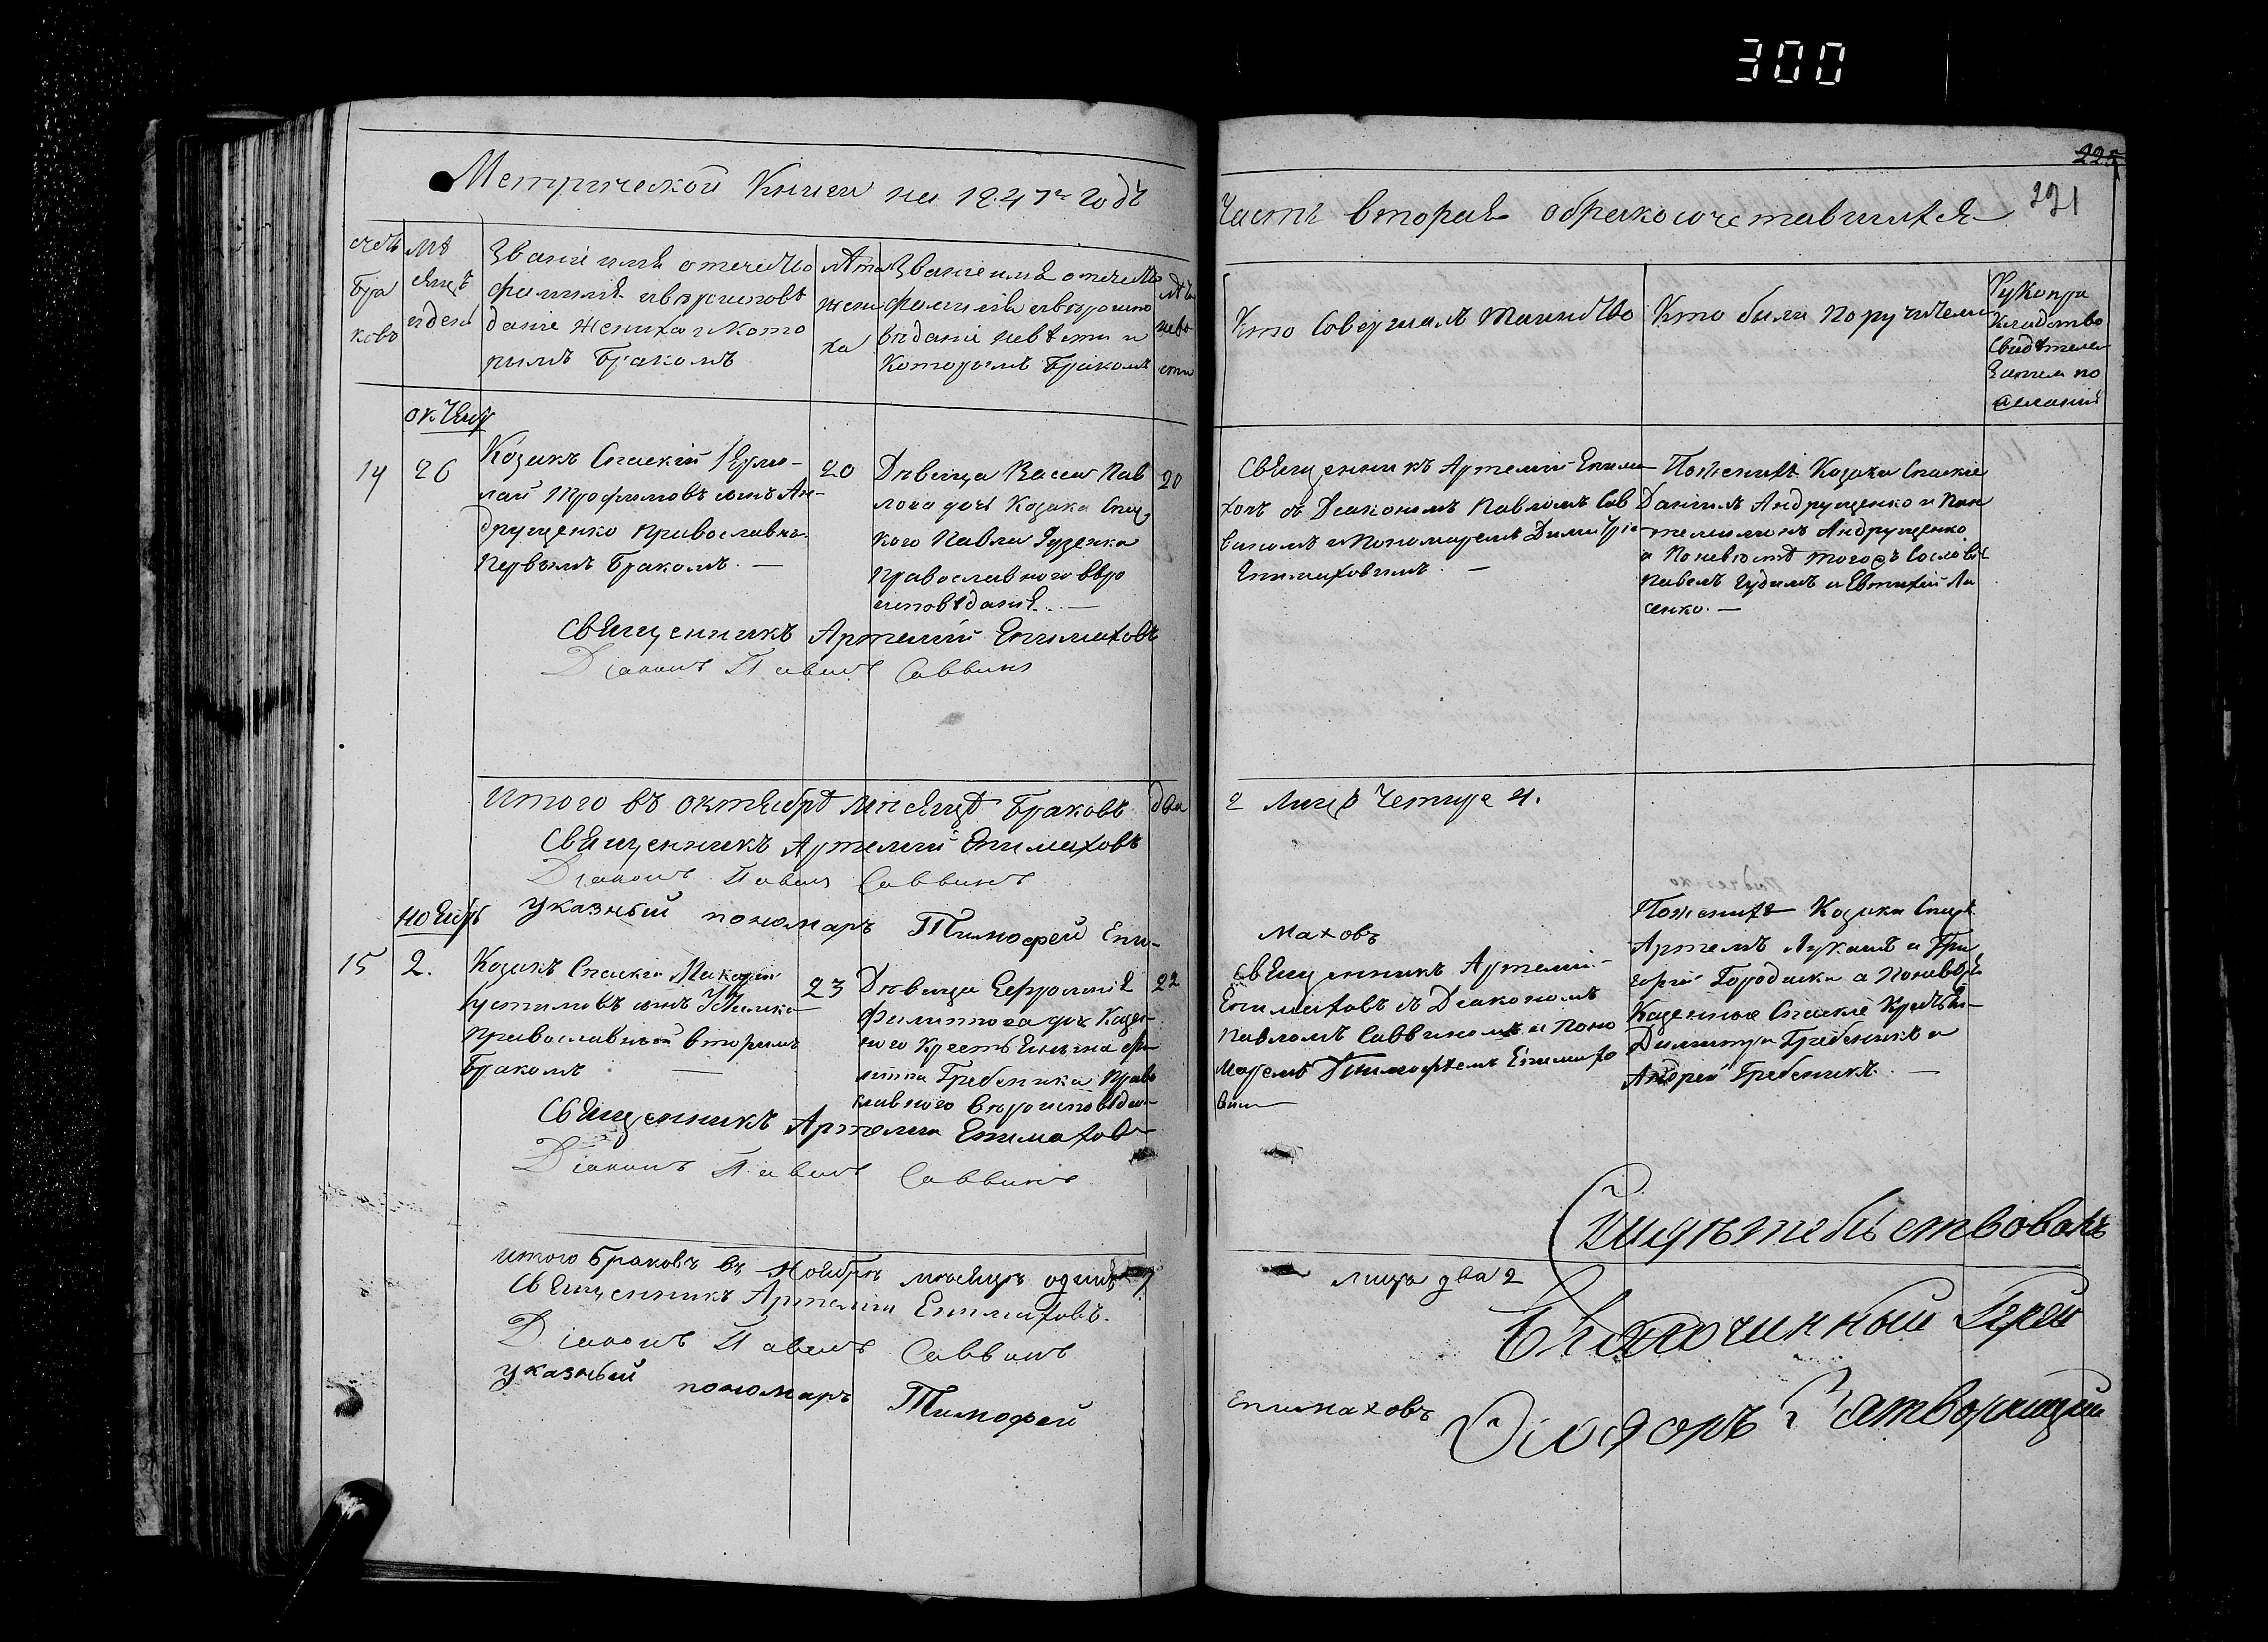 300
225
221
Метрической Книги на 1847й Годъ
Часть вторая обракосочетавшихся
счетъ
бра
ковъ
Мѣ
сяцъ
и день
Званіе имя отечество
фамилія и вѣроисповѣ
даніе жениха и кото
рымъ бракомъ
лѣта
жени
ха
Званіе имя отечество
фамилія и вѣроиспо
вѣданіе невѣсты и
которымъ бракомъ
лѣта
невѣ
сты
Кто совершалъ таинство
Кто были поручители
Рукопри
кладство
свидѣтелей
записи по
желанію
октября
14
26
Козакъ Спаскій
лай Трофимовъ сынъ Ан-
друщенко православна.
первымъ бракомъ. —
20
Дѣвица Васса Пав
лова дочь Козака Спас
кого Павла Гузенка
православного вѣро
исповѣданія. —
20
Священникъ Артемій Епима
ховъ съ Діакономъ Павломъ Сав
винымъ и Пономаремъ Димитріе
Епимаховимъ. —
По женихѣ Козаки Спаскіе
Даніилъ Андрущенко и Пан
телимонъ Андрущенко
а по невѣстѣ тогожъ сословія
Павелъ Гудимъ и Евтихій Ли
сенко. —
Священникъ Артемій Епимаховъ
Діаконъ Павелъ Саввинъ
Итого въ октябрѣ мѣсяцѣ браковъ два
2 лицъ четыре 4.
Священникъ Артемій Епимаховъ
Діаконъ Павелъ Саввинъ
указный пономаръ Тимофей Епи-
маховъ
ноябрь
15
2.
Козакъ Спаскій Макарій
Устимовъ сынъ
православный вторымъ
бракомъ —
23
Дѣвица Ефросинія
Филиппова дочь Казен-
ного крестьянина Фи
липпа Гребеника право
славного вѣроисповѣдан
22
Священникъ Артемій
Епимаховъ съ Діакономъ
Павломъ Саввиномъ и Поно
маремъ Тимофѣемъ Епимахо
вим
По женихѣ Козаки Спаск
Артемъ Лукашъ и Гри
горій Городиска а по невѣстѣ
Казенные Спаскіе Крестья-
Димитрій Гребеникъ и
Андрей Гребеникъ. —
Священникъ Артемій Епимаховъ
Діаконъ Павелъ Саввинъ
итого браковъ въ ноябрѣ мѣсяцѣ одинъ 1
лицъ два 2
Священникъ Артемій Епимаховъ.
Діаконъ Павелъ Саввинъ
указный пономаръ Тимофей
Епимаховъ
Свидѣтельствовалъ
Благочинный Іерей
Ѳіодоръ Затворницкій